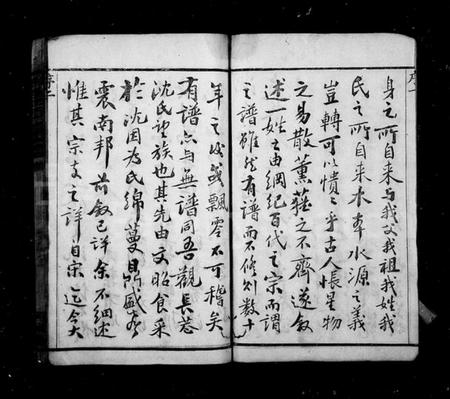 身之所自来与我父我祖我姓我
民之所自来水本水源之義
豈轉可以憒憒乎古人悵星物
之易散薰蕕之不齊遂叙
述一姓之由綱紀百代之宗而謂
之譜雖然有譜而不修則数十
年之後或飄零不可稽矣
有譜亦与無譜同吾觀長巷
沈氏望族也其先由文昭食采
於沈因为氏綿蔓昌盛
震南邦前叙已詳余不細述
惟其宗支之詳自宗迄今大
序一
序二